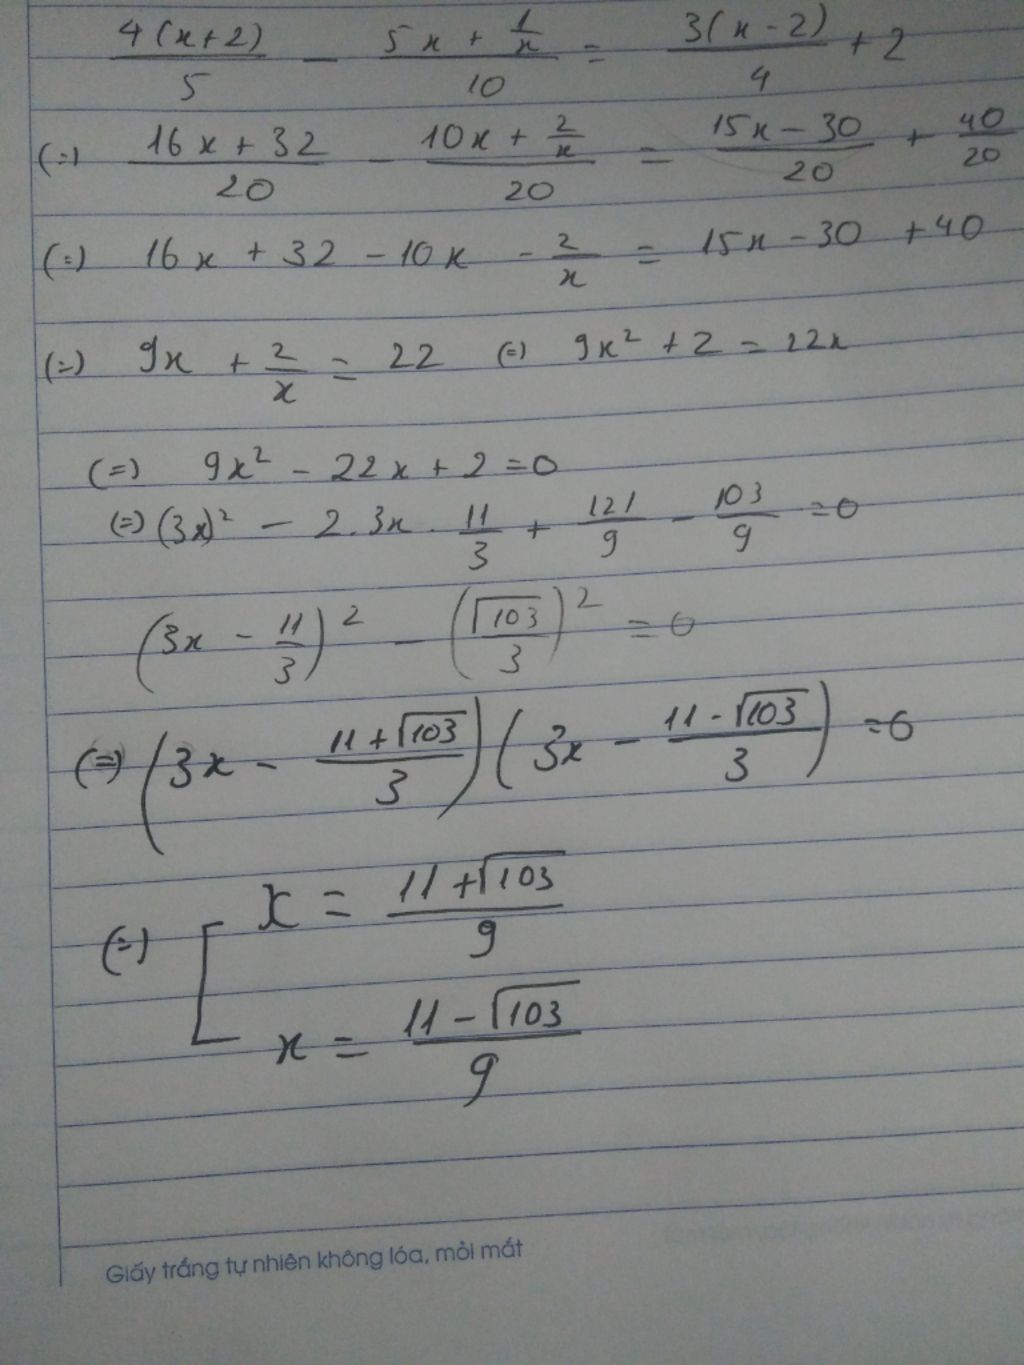 4(x+2)/5 - (5x + 1/x)/10 = 3(x-2)/4 + 2
(=) (16x + 32)/20 - (10x + 2/x)/20 = (15x - 30)/20 + 40/20
(=) 16x + 32 - 10x - 2/x = 15x - 30 + 40
(=) 9x + 2/x = 22 (=) 9x² + 2 = 22x
(=) 9x² - 22x + 2 = 0
(=) (3x)² - 2.3x.11/3 + 121/9 - 103/9 = 0
(3x - 11/3)² - (√103/3)² = 0
(=) (3x - (11+√103)/3)(3x - (11-√103)/3) = 0
(=) [ x = (11+√103)/9
x = (11-√103)/9
Giấy trắng tự nhiên không lóa, mỏi mắt